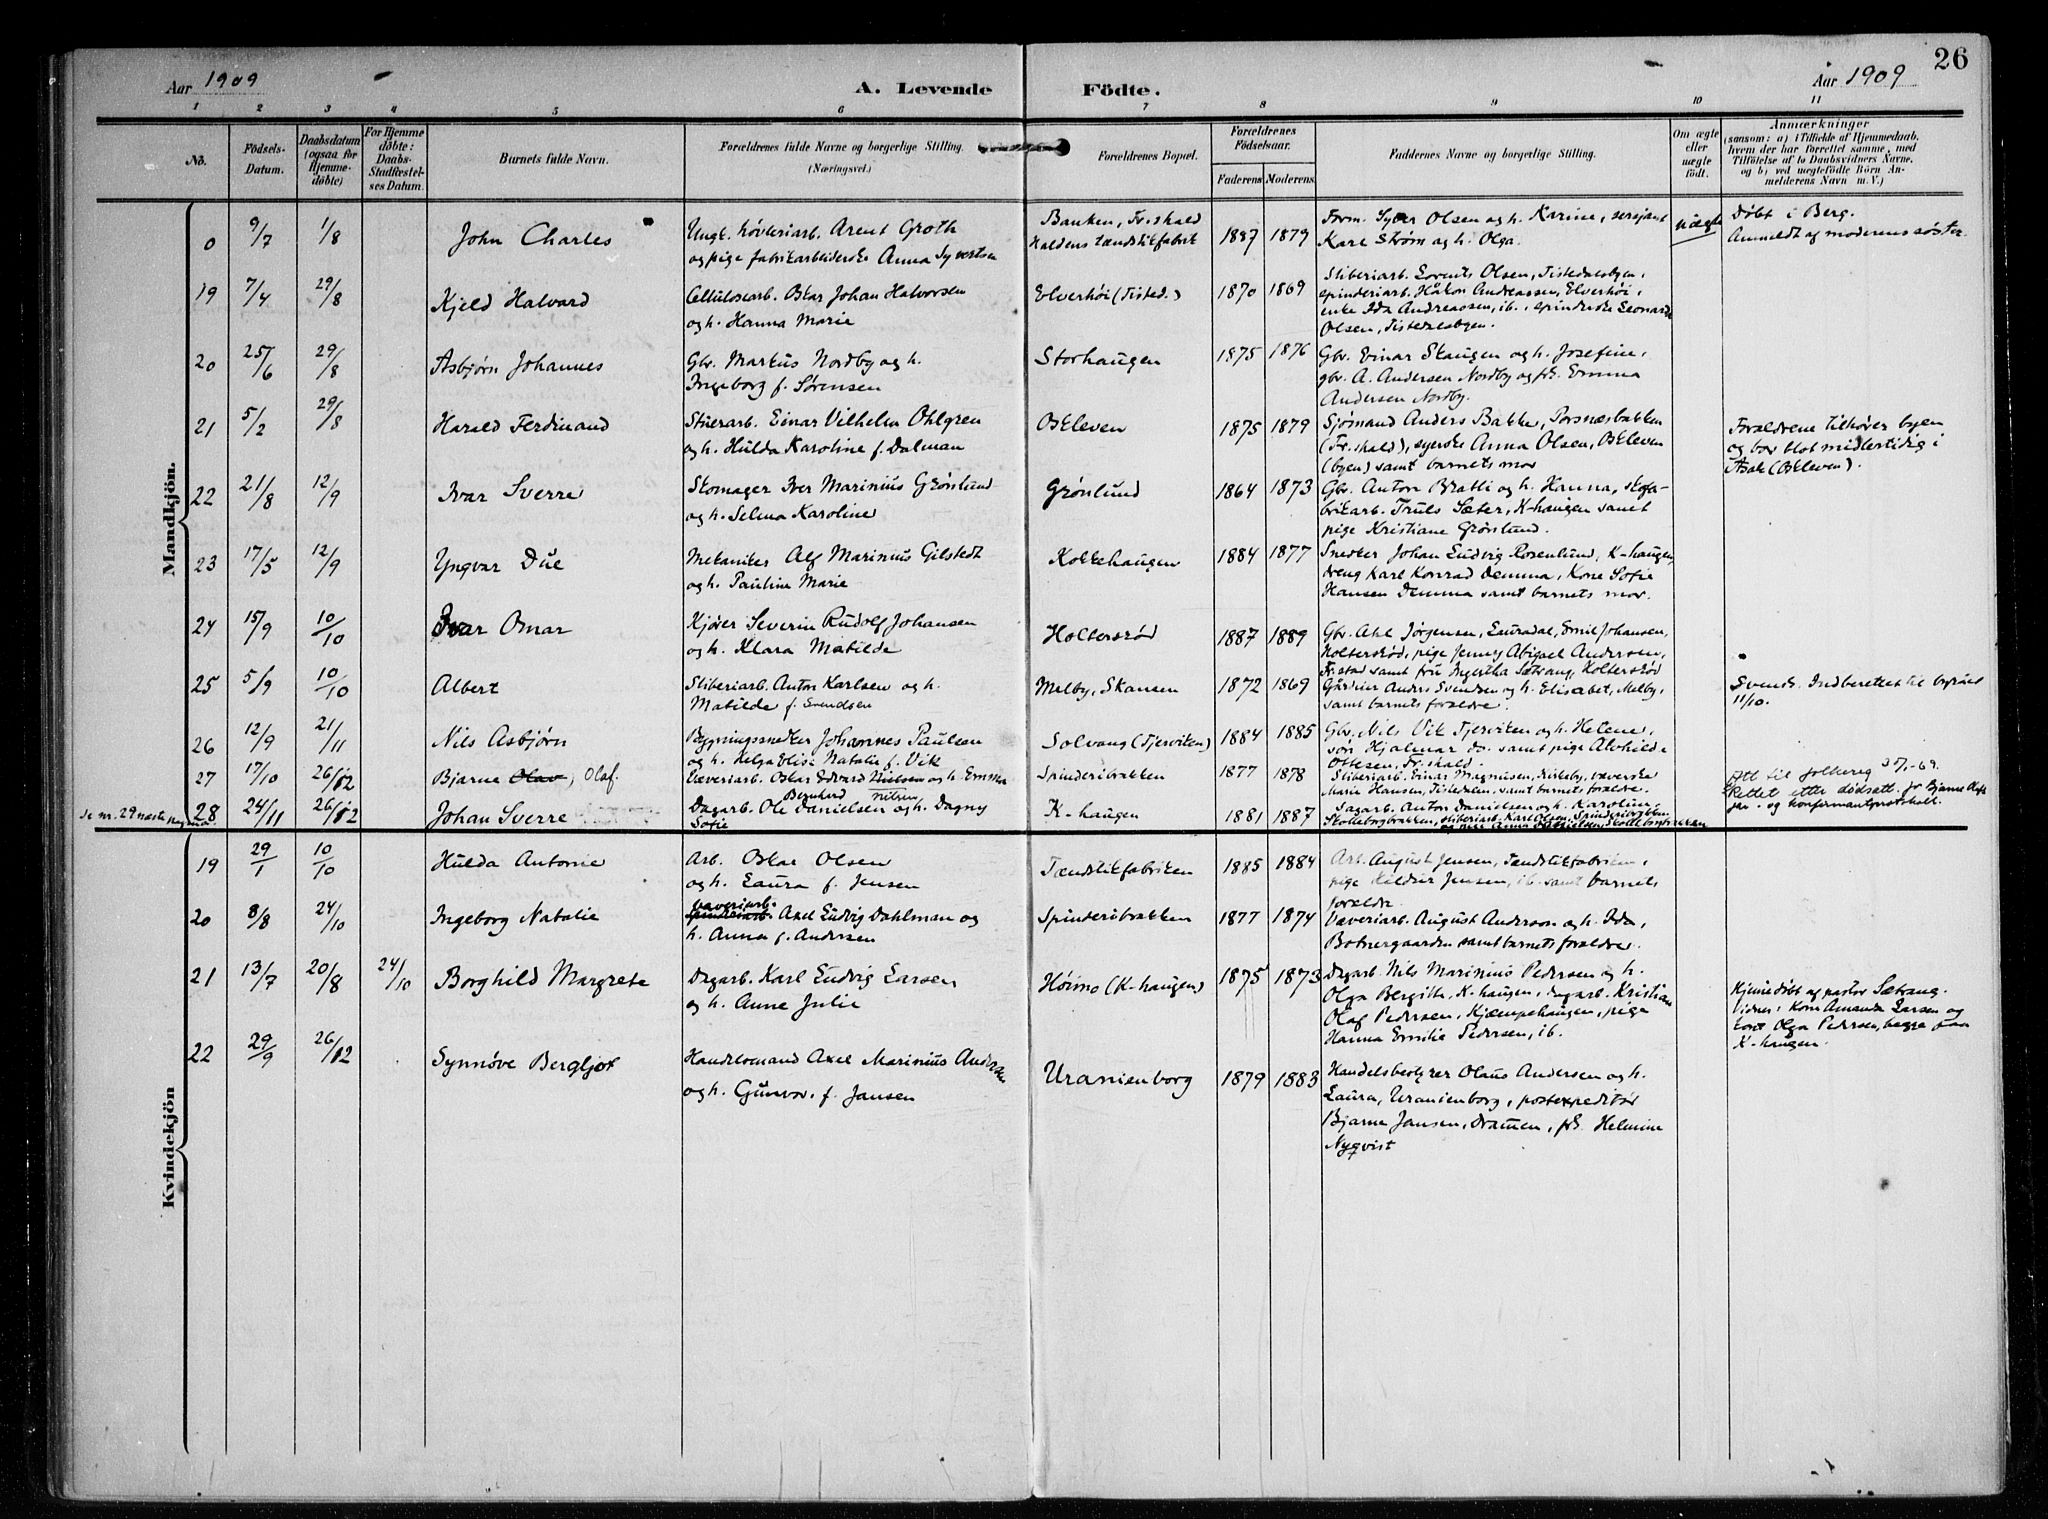 26
Aar 1909
A. Levende Födte.
Aar 1909
1 2 3 4 5 6 7 8 9 10 11
No.
Födsels-Datum.
Daabsdatum (ogsaa for Hjemme-döbte)
For Hjemme döbte: Daabs-Stadfæstel-ses Datum.
Barnets fulde Navn.
Forældrenes fulde Navne og borgerlige Stilling. (Næringsvei.)
Forældrenes Bopæl.
Forældrenes Födselsaar.
Faderens Moderens
Faddernes Navne og borgerlige Stilling.
Om ægte eller uægte födt.
Anmærkninger
(saasom: a) i Tilfælde af Hjemmedaab.
hvem der har forrettet samme, med
Tilföielse af to Daabsvidners Navne.
og b) ved uægtefödte Börn An-
melderens Navn m. V.)
Mandkjön.
0 9/7 1/8 John Charles
Ungk. høvleriarb. Arent Groth
og pige fabrikarbeiderske Anna Syvertsen
Banken, Fr.skald
Haldens tændstikfabrik 1887 1879
Form. Syver Olsen og h. Karine, sersjant
Karl Strøm og h. Olga.
uægte
Døbt i Berg.
Anmeldt af moderens søster.
19 7/4 29/8 Kjeld Halvard
Cellulosearb. Oskar Johan Halvorsen
og h. Hanna Marie
Elverhöi (Tisted.) 1870 1869
Sliberiarb. Lorents Olsen, Tistedalsbyen,
spinderiarb. Håkon Andreassen, Elverhöi,
enke Ida Andreassen, ib., spinderske Leonarda
Olsen, Tistedalsbyen.
20 25/6 29/8 Asbjørn Johannes
Gbr. Markus Nordby og h.
Ingeborg f. Sørensen
Storhaugen 1875 1876
Gbr. Einar Skaugen og h. Josefine,
gbr. A. Andersen Nordby og frk. Emma
Andersen Nordby.
21 5/2 29/8 Harald Ferdinand
Stuerarb. Einar Vilhelm Ohlgren
og h. Hulda Karoline f. Dalman
Oskleven 1875 1879
Sjømand Anders Bakke, Torsnæsbakken
(Fr.skald), syerske Anna Olsen, Oskleven
(byen) samt barnets mor
Forældrene tilhører byen
og bor blot midlertidig i
Asak (Oskleven).
22 21/8 12/9 Ivar Sverre
Skomager Iver Marinius Grønlund
og h. Selma Karoline
Grønlund 1864 1873
Gbr. Anton Bratli og h. Hanna, skofa-
brikarb. Truls Sæter, K-haugen samt
pige Kristiane Grønlund.
23 17/5 12/9 Yngvar Due
Mekaniker Alf Marinius Gilstedt
og h. Pauline Marie
Kokkehaugen 1884 1877
Snedker Johan Ludvig Rosenlund, K-haugen,
dreng Karl Konrad Demma, Kone Sofie
Hansen Demma samt barnets mor.
24 15/9 10/10 Ivar Omar
Kjører Severin Rudolf Johansen
og h. Klara Matilde
Holterskød 1887 1889
Gbr. Axel Jørgensen, Lauradal, Emil Johansen,
Holterskød, pige Jenny Abigael Andersen,
Fr.stad samt fru Ingertha Sætrang, Holterskød
25 5/9 10/10 Albert
Sliberiarb. Anton Karlsen og h.
Matilde f. Svendsen
Melby, Skansen 1872 1869
Gårdeier Anders Svendsen og h. Elisabet, Melby,
samt barnets forældre.
Svends. Indberettet til byrået
11/10.
26 12/9 21/11 Nils Asbjørn
Bygningssnedker Johannes Paulsen
og h. Helga Elise Natalie f. Vik
Solvang (Tjerviken) 1884 1885
Gbr. Nils Vik Tjerviken og h. Helene,
søn Hjalmar ds. samt pige Alvhilde
Ottesen, Fr.skald.
27 17/10 26/12 Bjarne Olav, Olaf.
Væveriarb. Oskar Edvard Nielsen og h. Emma
Bernherd Nilsen
Spinderibrakken 1877 1878
Sliberiarb. Einar Magnusen, Kirkeby, væverske
Marie Hansen, Tistedalen, samt barnets forældre.
Att til folkereg 25/1-69.
Rettet etter dødsatt.
og konfirmantprotokoll.
se nr. 29 næste pagina.
28 24/11 26/12 Johan Sverre
Dagarb. Ole Danielsen og h. Dagny
Sofie
K-haugen 1881 1887
Sagarb. Anton Danielsen og h. Karoline,
Skolleborgbrakken, sliberiarb. Karl Olsen, Spinderibrakken
og pige Anna Danielsen, Skolleborgbrakken
Kvindekjön
19 29/1 10/10 Hulda Antonie
Arb. Oskar Olsen
og h. Laura f. Jensen
Tændstikfabriken 1885 1884
Arb. August Jensen, Tændstikfabriken,
pige Hildur Jensen, ib. samt barnets
forældre.
20 8/8 24/10 Ingeborg Natalie
væveriarb.
Spinderiarb. Axel Ludvig Dahlman og
h. Anna f. Andersen
Spinderibrakken 1877 1874
Væveriarb. August Anderson og h. Ida,
Botnergaarden samt barnets forældre.
21 13/7 20/8 24/10 Borghild Margrete
Dagarb. Karl Ludvig Larsen
og h. Anne Julie
Høimo (K-haugen) 1875 1873
Dagarb. Nils Marinius Pedersen og h.
Olga Bergitte, K-haugen, dagarb. Kristian
Olaf Pedersen, Kjæmpehaugen, pige
Hanna Emilie Pedersen, ib.
Hjemmedøbt af pastor Sætrang.
Vidner: Kone Amanda Larsen og
kone Olga Pedersen, begge paa
K-haugen.
22 29/9 26/12 Synnøve Bergljot
Handelsmand Axel Marinius Andersen
og h. Gunvor f. Jansen
Uranienborg 1879 1883
Handelsbestyrer Olaus Andersen og h.
Laura, Uranienborg, postexpeditør
Bjarne Jansen, Dramen, frk. Helmine
Nyqvist